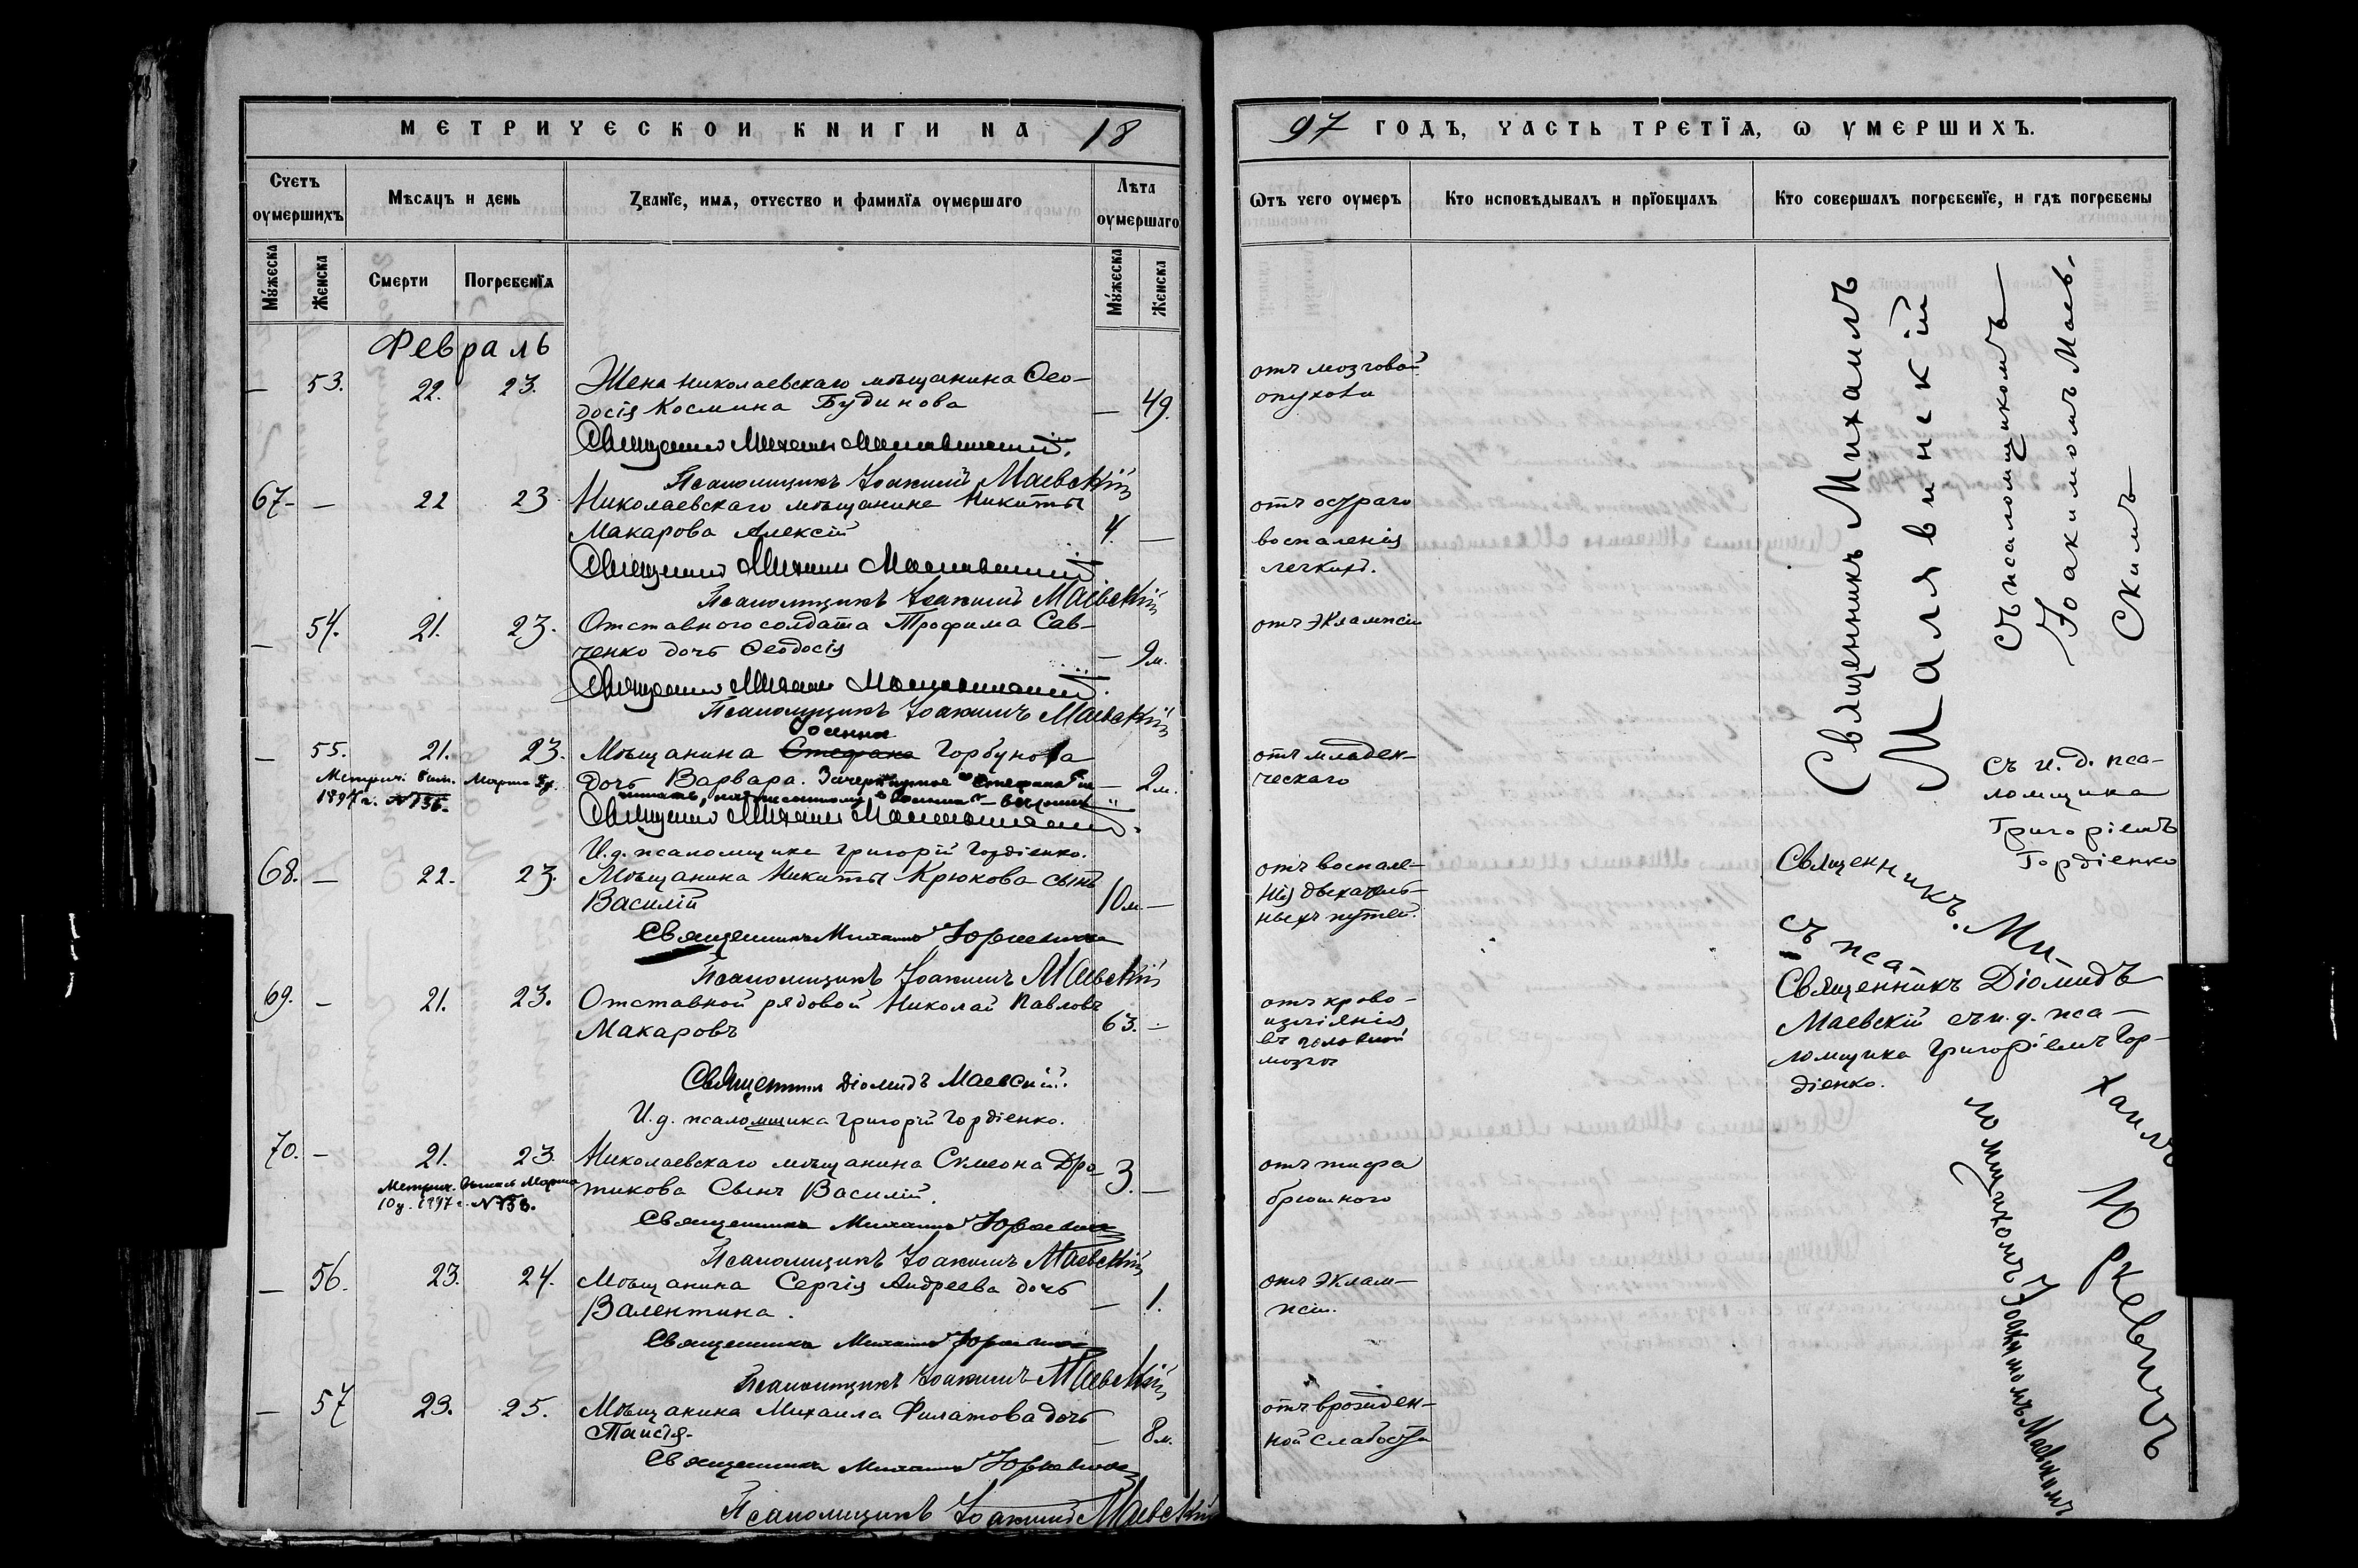 МЕТРИЧЕСКОЙ КНИГИ НА 1897 ГОДЪ, ЧАСТЬ ТРЕТІЯ, Ѡ УМЕРШИХЪ.
Счетъ оумершихъ
Мѣсяцъ и день
Званїе, имя, отчество и фамилїя оумершаго
Лѣта оумершаго
Ѿтъ чего оумеръ
Кто исповѣдывалъ и прїобщалъ
Кто совершалъ погребенїе, и гдѣ погребены
Мужеска
Женска
Смерти
Погребенїя
Мужеска
Женска
Февраль
— 53. 22. 23. Жена Николаевскаго мѣщанина Ѳео-
досія Космина Будинова — 49.
отъ мозговой
опухоли
Священникъ Михаилъ Малявинскій.
Псаломщикъ Іоакимъ Маевскій
67 — 22 23 Николаевскаго мѣщанина Никиты
Макарова Алексій 4. —
отъ остраго
воспаленія
легкихъ.
Священникъ Михаилъ Малявинскій
Псаломщикъ Іоакимъ Маевскій
— 54. 21. 23. Отставного солдата Трофима Сав-
ченко дочь Ѳеодосія — 9 м.
отъ эклампсіи
Священникъ Михаилъ Малявинскій.
Псаломщикъ Іоакимъ Маевскій
Іосифа
— 55. 21. 23. Мѣщанина Стефана Горбунова
дочь Варвара. Зачеркнутое "Стефана" не — 2 м.
отъ младен-
ческаго
Метрич. вып. Марта
1897 г. №136.
Священникъ Михаилъ Малявинскій.
И. д. псаломщика Григорій Гордіенко.
68. — 22. 23. Мѣщанина Никиты Крюкова сынъ
Василій 10 м. —
отъ воспале-
нія дыхатель-
ныхъ путей.
Священникъ Михаилъ Юркевичъ
Псаломщикъ Іоакимъ Маевскій
69. — 21. 23. Отставной рядовой Николай Павловъ
Макаровъ 63. —
отъ крово-
изліянія
въ головной
мозгъ
Священникъ Діомидъ Маевскій.
И. д. псаломщика Григорій Гордіенко.
70. — 21. 23. Николаевскаго мѣщанина Симеона Дро-
тикова сынъ Василій. 3. —
отъ тифа
брюшного
Метрич. выпись Марта
10 д. 1897 г. №138.
Священникъ Михаилъ Юркевичъ
Псаломщикъ Іоакимъ Маевскій
— 56. 23. 24. Мѣщанина Сергія Андреева дочь
Валентина. — 1.
отъ эклам-
псіи.
Священникъ Михаилъ Юркевичъ
Псаломщикъ Іоакимъ Маевскій
— 57 23. 25. Мѣщанина Михаила Филатова дочь
Таисія. — 8 м.
отъ врожден-
ной слабости
Священникъ Михаилъ Юркевичъ
Псаломщикъ Іоакимъ Маевскій
Священникъ Михаилъ
Малявинскій
съ псаломщикомъ
Іоакимомъ Маев-
скимъ
съ и. д. пса-
ломщика
Григоріемъ
Гордіенко
Священникъ Михаилъ Юркевичъ
съ псаломщикомъ Іоакимомъ Маевскимъ
Священникъ Діомидъ
Маевскій съ и. д. пса-
ломщика Григоріемъ Гор-
діенко.